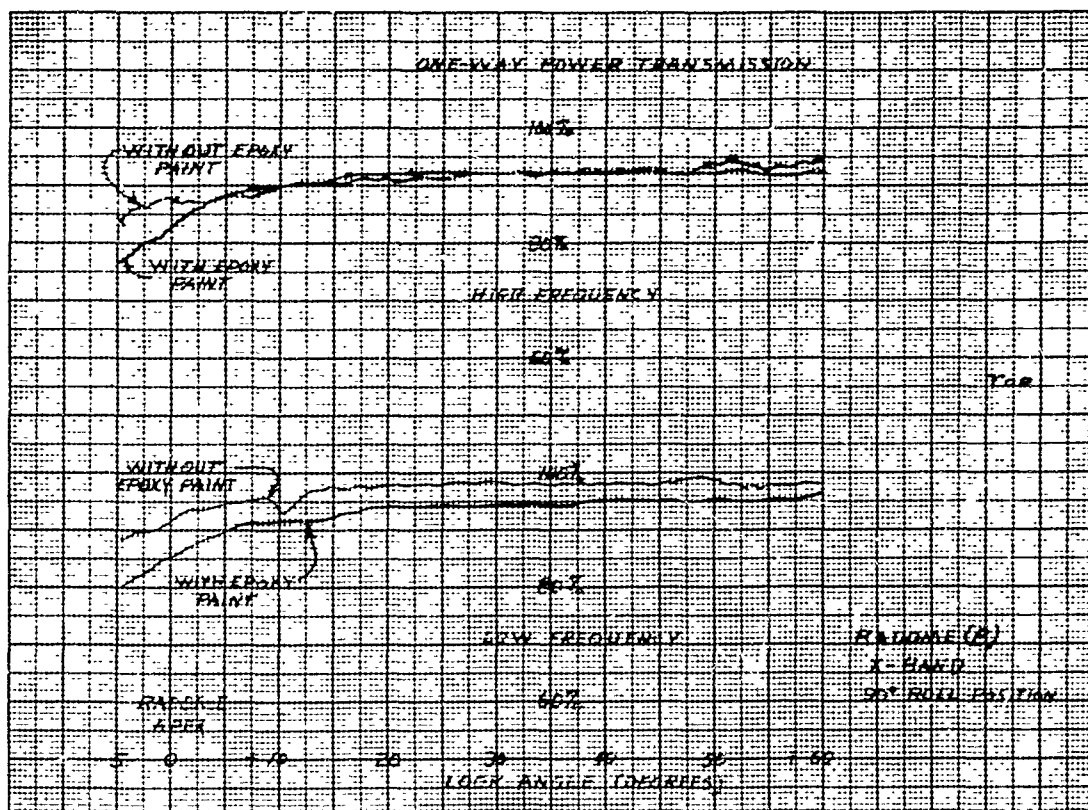 ONE-WAY POWER TRANSMISSION
100%
WITHOUT EPOXY
PAINT
80%
WITH EPOXY
PAINT
HIGH FREQUENCY
60%
WITHOUT
EPOXY PAINT
100%
WITH EPOXY
PAINT
80%
LOW FREQUENCY
RADOME (B)
X-BAND
90° ROLL POSITION
60%
APEX
5 0 +10 20 30 40 50 60
LOOK ANGLE (DEGREES)